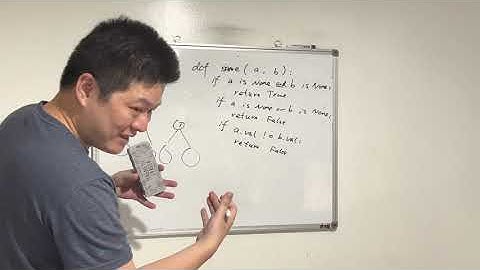 def same(a, b):
if a is None and b is None:
return True
if a is None or b is None,
return False
if a.val != b.val:
return False